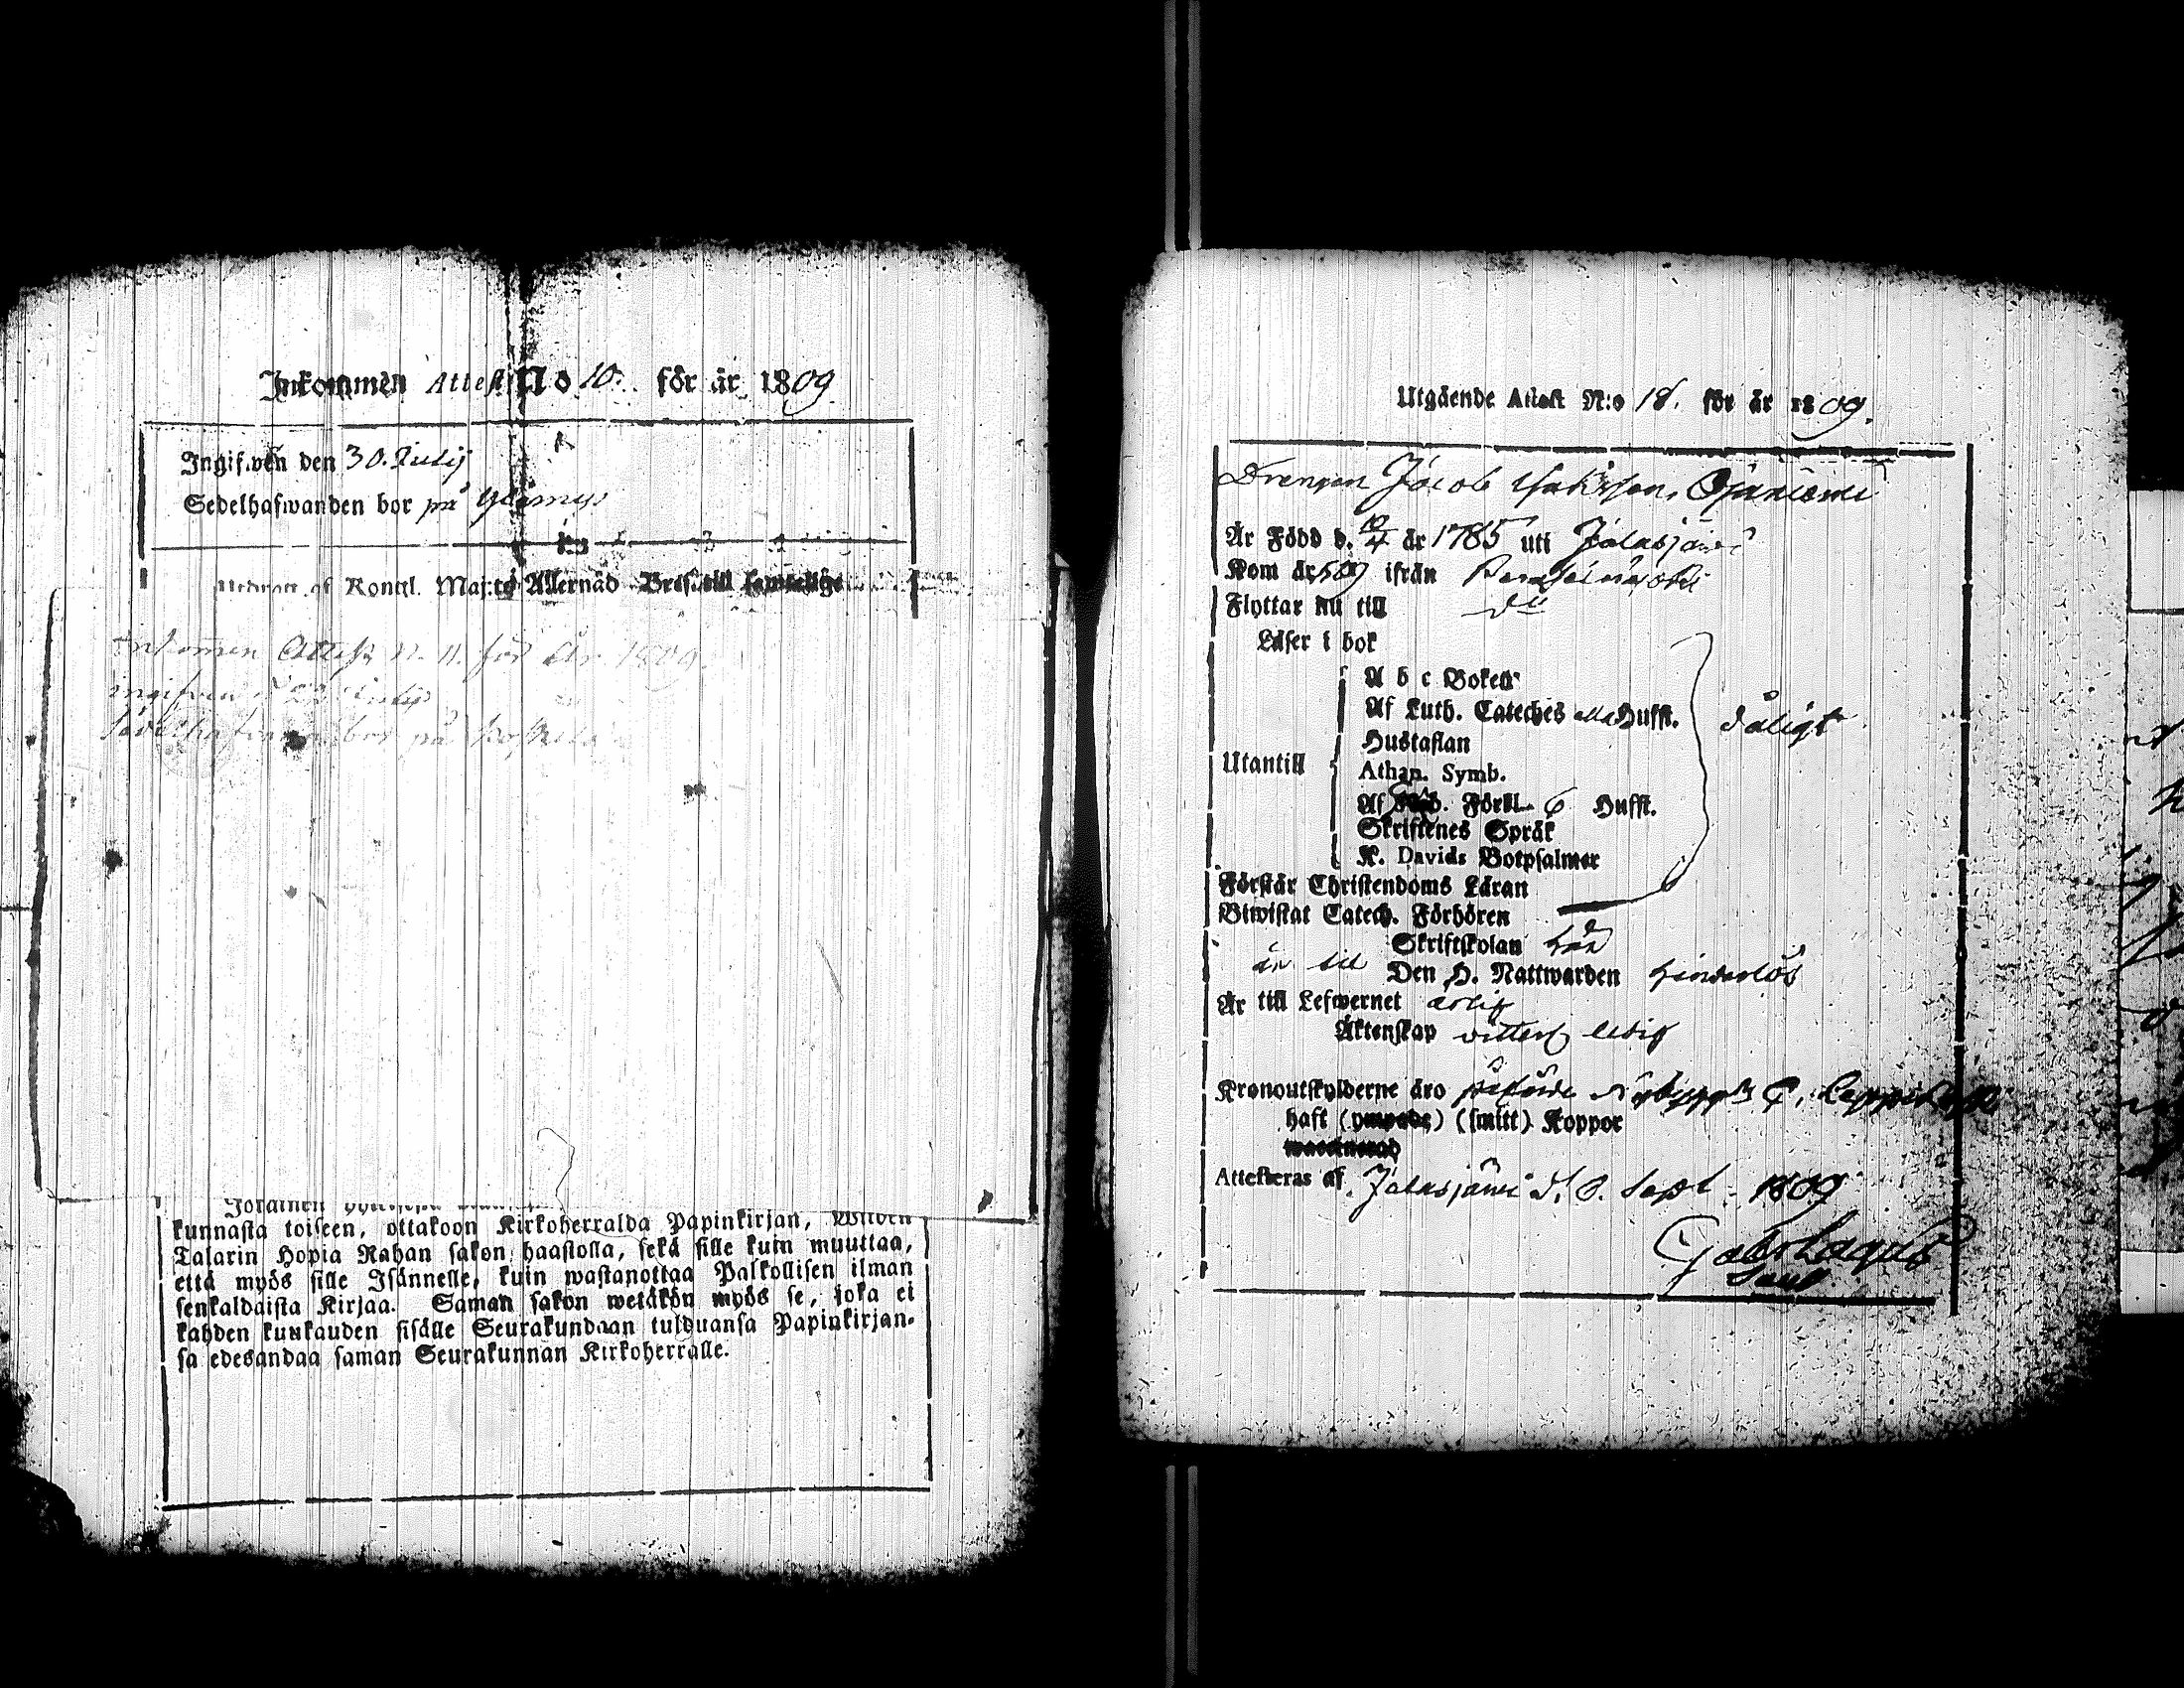 Inkommen Attest No 10. för år 1809
Ingifwen den 30. Julij
Sedelhafwanden bor på
Utdrag af Kongl. Maj:ts Allernåd Bref till samtelige
Inkommen Attest N. 11. för år 1809.
ingifven d Julij
Sedelhafvanden bor på Koskela
Jokainen
kunnasta toiseen, ottakoon Kirkoherralda Papinkirjan, Wiiden
Talarin Hopia Rahan sakon haastolla, sekä sille kuin muuttaa,
että myös sille Isännelle, kuin wastanottaa Palkollisen ilman
senkaldaista Kirjaa. Saman sakon wetäkön myös se, joka ei
kahden kuukauden sisälle Seurakundaan tulduansa Papinkirjan-
sa edesandaa saman Seurakunnan Kirkoherralle.
Utgående Attest N:o 18. för år 1809.
Drengen Jacob
Är Född d. 10/4 år 1785 uti Jalasjärvi
Kom år 1809 ifrån
Flyttar nu till do
Läser i bok
A b c Boken
Af Luth. Cateches alla Hufst. dåligt
Hustaflan
Utantill
Athan. Symb.
Af Förkl. 6 Hufst.
Skriftenes Språk
K. Davids Botpsalmer
Förstår Christendoms Läran
Biwistat Catech. Förhören
Skriftskolan
är till Den H. Nattwarden hinderlös
Är till Lefwernet ärlig
Äktenskap ledig
Kronoutskylderne äro påförde
haft (ympade) (smitt) Koppor
waccinerad
Attesteras af Jalasjärvi d. 8. Sept. 1809
Gabr Lagus